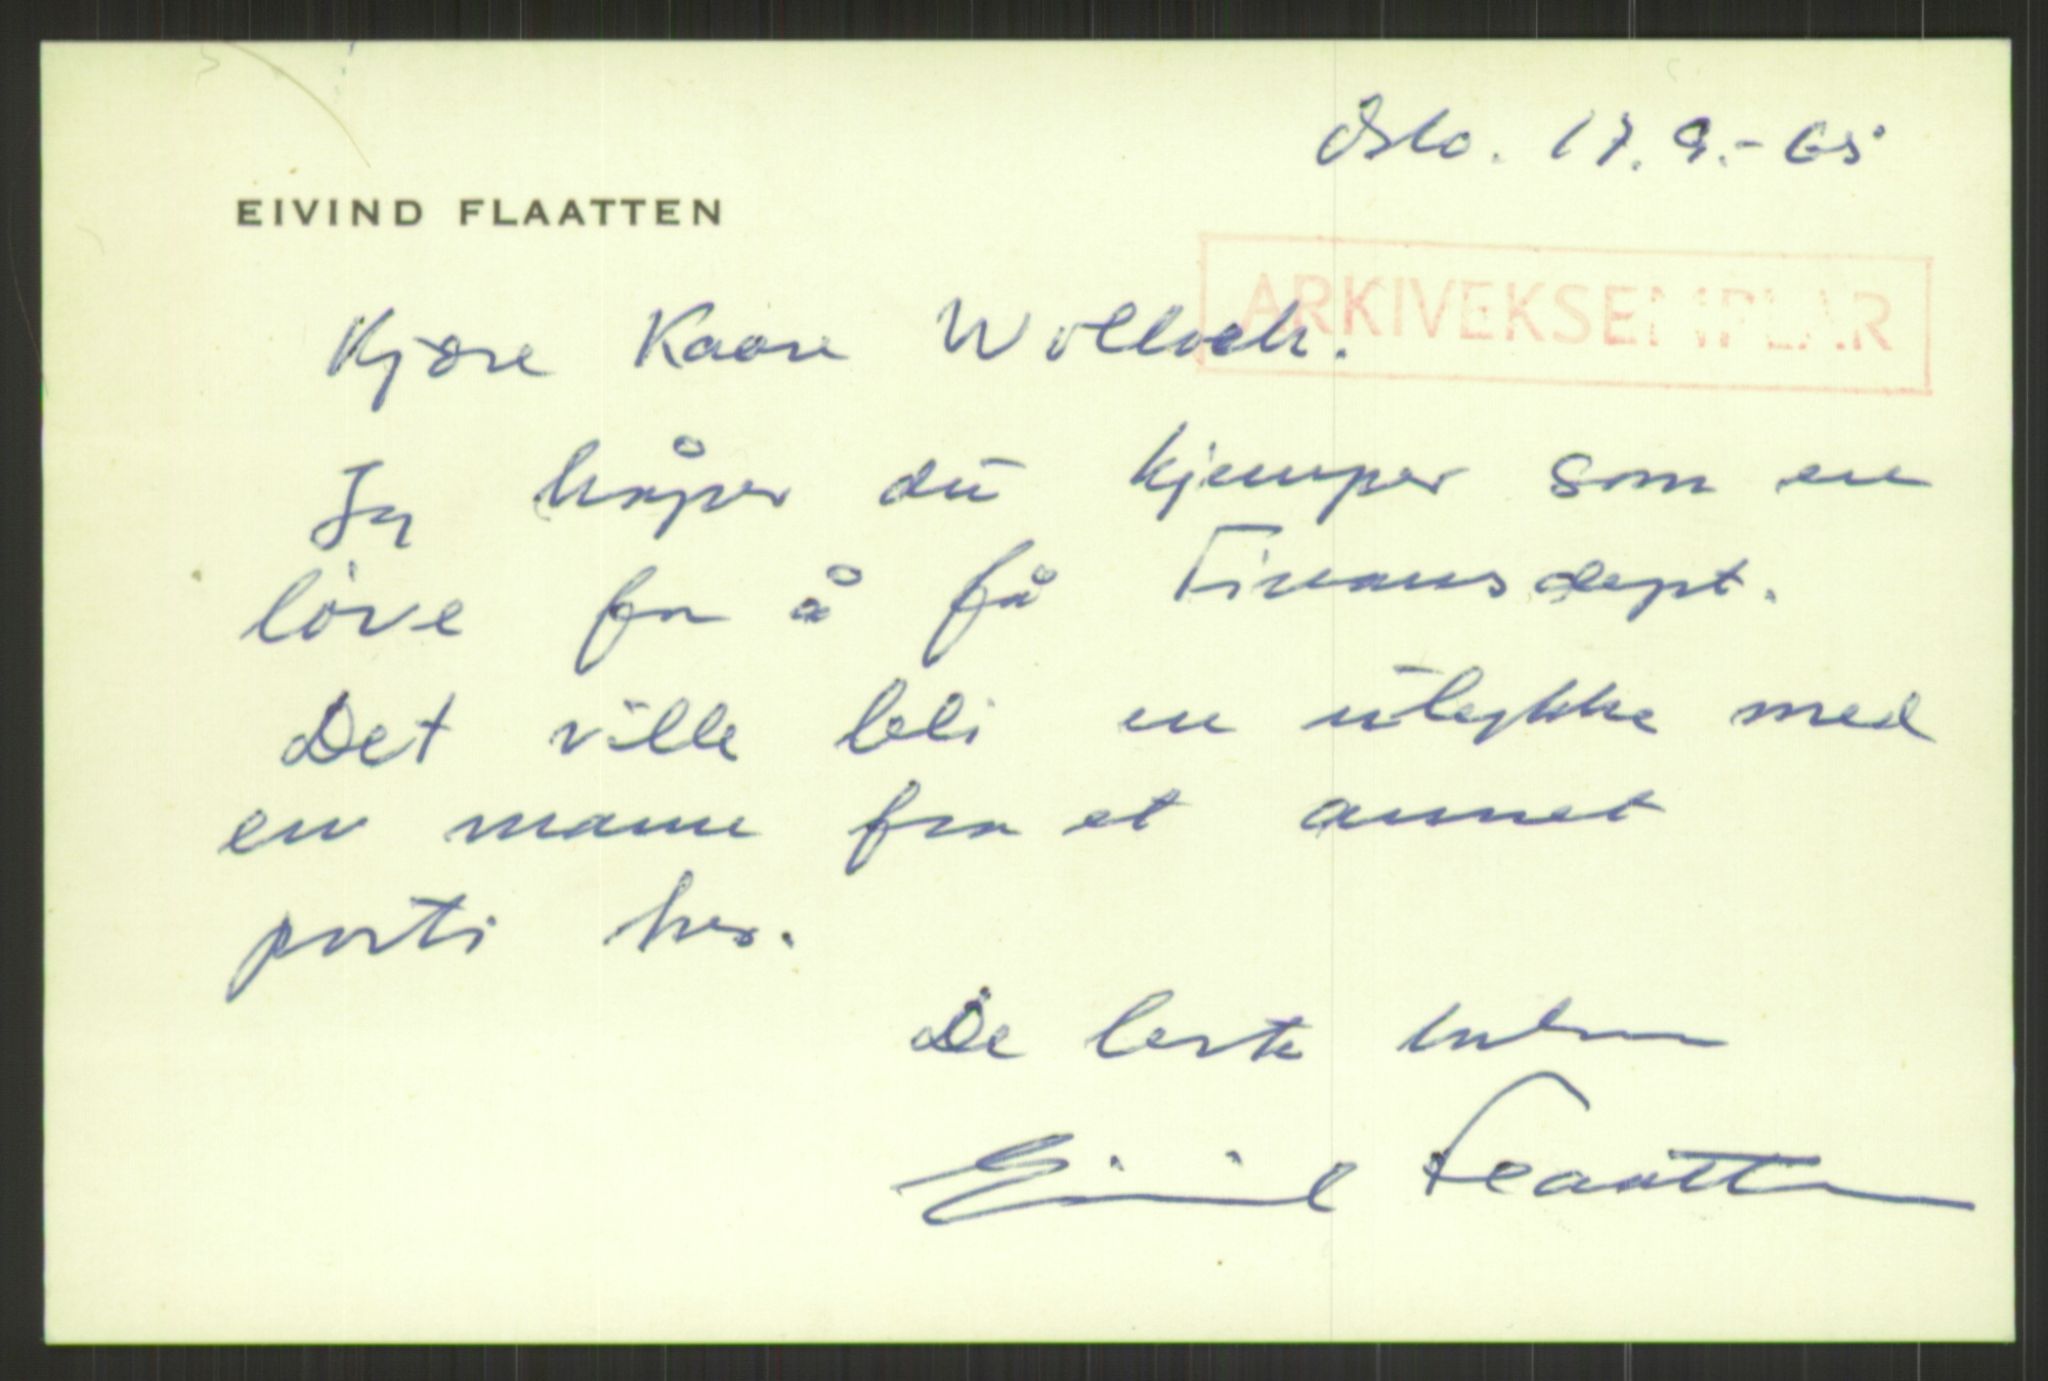 Oslo. 17.9.-65
EIVIND FLAATTEN
ARKIVEKSEMPLAR
Kjære Kaare Willoch.
Jeg håper du kjemper som en
løve for å få Finansdept.
Det ville bli en ulykke med
en mann fra et annet
parti her.
De beste hilsen
Eivind Flaatten